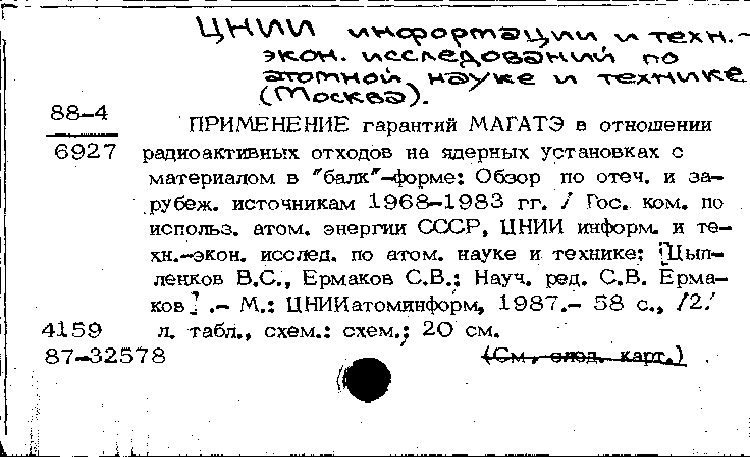 ЦНИИ информации и техн.-
экон. исследований по
атомной науке и технике
(Москва).
88-4
6927
ПРИМЕНЕНИЕ гарантий МАГАТЭ в отношении
радиоактивных отходов на ядерных установках с
материалом в "балк"-форме: Обзор по отеч. и за-
рубеж. источникам 1968-1983 гг. / Гос. ком. по
использ. атом. энергии СССР, ЦНИИ информ. и те-
хн.-экон. исслед. по атом. науке и технике; [Цып-
ленков В.С., Ермаков С.В.; Науч. ред. С.В. Ерма-
ков] .- М.: ЦНИИатоминформ, 1987.- 58 с., /2/
4159 л. табл., схем.: схем.; 20 см.
87-32578 (См. след. карт.)